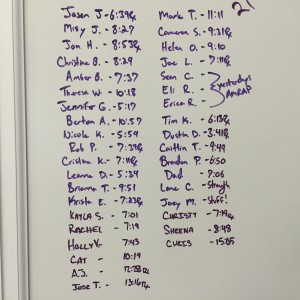 Jason J - 6:39Rx
Missy J. - 8:27
Jon H. - 8:53Rx
Christine B. - 8:29
Amber B. - 7:37
Theresa W - 10:18
Jennifer G. - 5:17
Berton A. - 10:57
Nicole K. - 5:59
Rob P. - 7:39Rx
Cristina K. - 7:11Rx
Leanna D. - 5:34
Brianna T. - 9:51
Krista E. - 7:23Rx
KAYLA S. - 7:01
RACHEL - 7:19
HOLLY K - 7:43
CAT - 10:19
A.J. - Rx
JOSE T. - 13:16Rx
Mark T. - 11:11
Cameron S. - 9:21Rx
Helen O. - 9:10
Joe L. - 7:11Rx
Sean C.
Eli R.
Erica R.
yesterdays
AMRAP
Tim K. - 6:13Rx
Dustin D. - 3:41Rx
Caitlin T. - 9:49
Brandon P. - 6:50
Dad - 7:06
Lane C. - Strength
Joey M. - Stuff!
CHRISTY - 7:19Rx
SHEENA - 8:48
CHRIS - 15:05